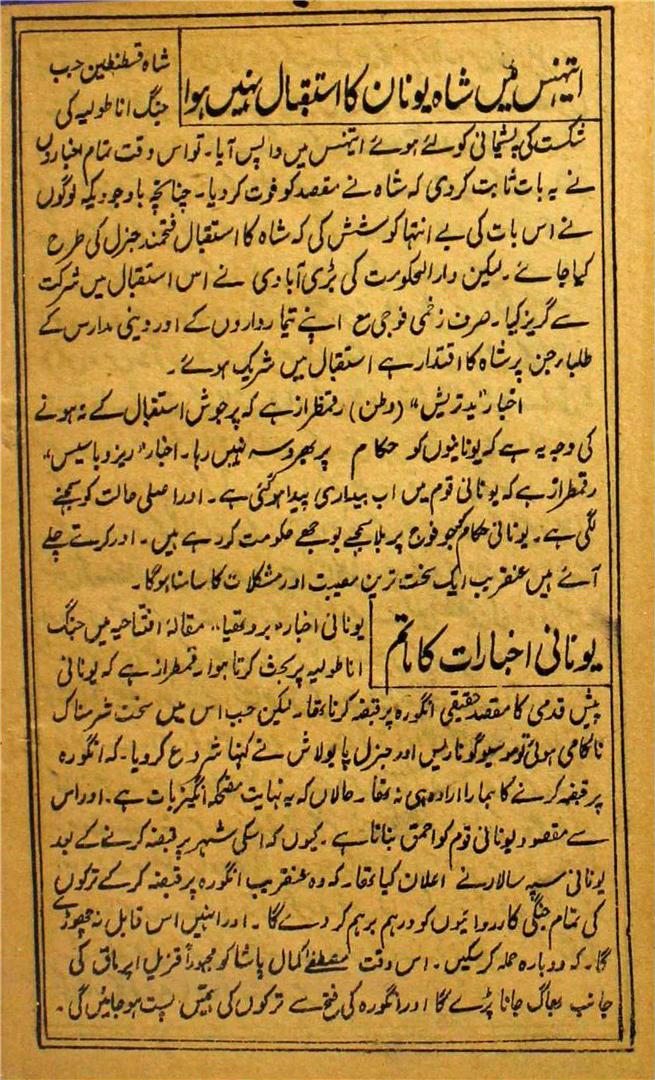 ایتھنس میں شاہ یونان کا استقبال نہیں ہوا
شاہ قسطنطین جب
جنگ اناطولیہ کی
شکست کی پشیمانی کو لئے ہوئے ایتھنس میں واپس آیا۔ تو اس وقت تمام اخباروں
نے یہ بات ثابت کردی کہ شاہ نے مقصد کو فوت کردیا۔ چنانچہ باوجودیکہ لوگوں
نے اس بات کی بے انتہا کوشش کی کہ شاہ کا استقبال فتحمند جنرل کی طرح
کیا جائے۔ لیکن دارالحکومت کی بڑی آبادی نے اس استقبال میں شرکت
سے گریز کیا۔ صرف زخمی فوجی مع اپنے تیمارداروں کے اور دینی مدارس کے
طلباء جن پر شاہ کا اقتدار ہے استقبال میں شریک ہوئے۔
اخبار "پتریش" (وطن) رقمطراز ہے کہ پرجوش استقبال کے نہ ہونے
کی وجہ یہ ہے کہ یونانیوں کو حکام پر بھروسہ نہیں رہا۔ اخبار "ریزوباسیس"
رقمطراز ہے کہ یونانی قوم میں اب بیداری پیدا ہوگئی ہے۔ اور اصلی حالت کو سمجھنے
لگی ہے۔ یونانی حکام جو فوج پر بلا سمجھے بوجھے حکومت کررہے ہیں۔ اور کرتے چلے
آئے ہیں عنقریب ایک سخت ترین مصیبت اور مشکلات کا سامنا ہوگا۔
یونانی اخبارات کا ماتم
یونانی اخبار "برودیقیا" مقالۂ افتتاحیہ میں جنگ
اناطولیہ پر بحث کرتا ہوا رقمطراز ہے کہ یونانی
پیش قدمی کا مقصد حقیقی انگورہ پر قبضہ کرنا تھا۔ لیکن جب اس میں سخت شرمناک
ناکامی ہوئی تو موسیو گوناریس اور جنرل پاپولاش نے کہنا شروع کردیا۔ کہ انگورہ
پر قبضہ کرنے کا ہمارا ارادہ ہی نہ تھا۔ حالاں کہ یہ نہایت مضحکہ انگیز بات ہے۔ اور اس
سے مقصود یونانی قوم کو احمق بنانا ہے۔ کیوں کہ اسکی شہر پر قبضہ کرنے کے بعد
یونانی سپہ سالار نے اعلان کیا تھا۔ کہ وہ عنقریب انگورہ پر قبضہ کرکے ترکوں
کی تمام جنگی کارروائیوں کو درہم برہم کردے گا۔ اور انہیں اس قابل نہ چھوڑے
گا۔ کہ دوبارہ حملہ کرسکیں۔ اس وقت مصطفےٰ کمال پاشا کو مجبوراً قزیل ایرماق کی
جانب بھاگ جانا پڑے گا اور انگورہ کی فتح سے ترکوں کی ہمتیں پست ہوجائیں گی۔